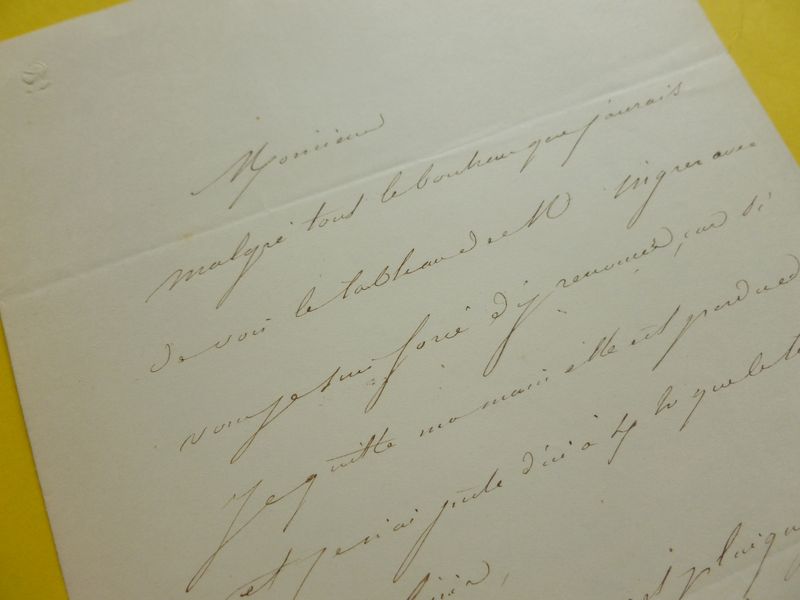 Monsieur
malgré tout le bonheur que j'aurais
de voir le tableau de M Ingres avec
vous je suis forcé d'y renoncer, car si
Je quitte ma main elle est perdue
et je n'ai juste d'ici à 4 h que le te
plaique